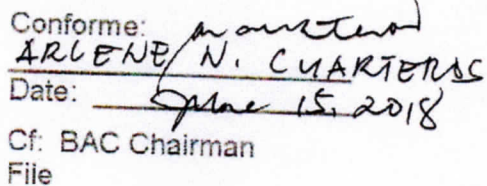 Conforme:
ARLENE N. CUARTEROS
Date: June 15, 2018
Cf: BAC Chairman
File